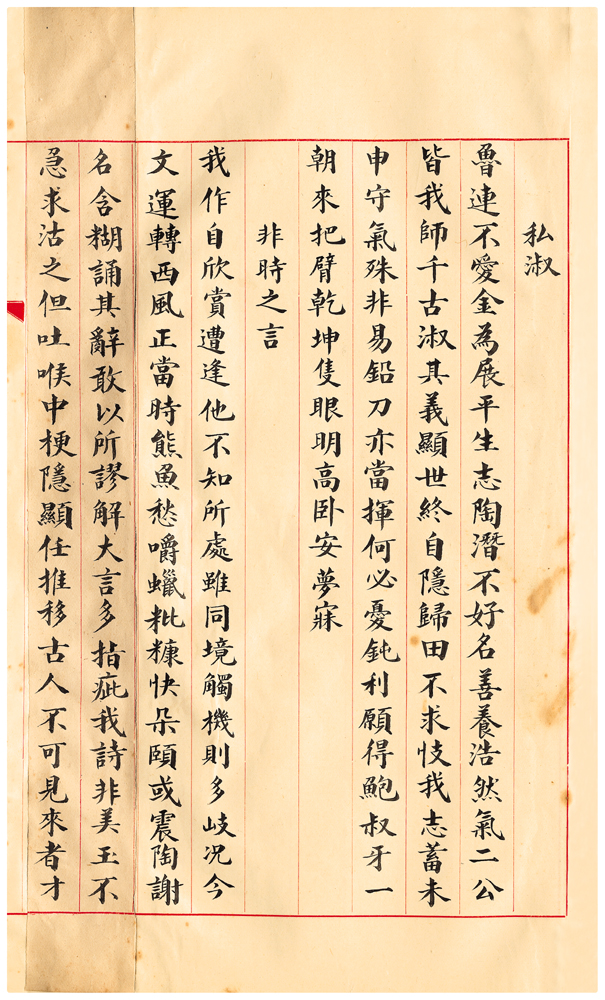 私淑
魯連不愛金為展平生志陶潛不好名善養浩然氣二公
皆我師千古淑其義顯世終自隱歸田不求忮我志蓄未
申守氣殊非易鉛刀亦當揮何必憂鈍利願得鮑叔牙一
朝來把臂乾坤隻眼明高卧安夢寐
非時之言
我作自欣賞遭逢他不知所處雖同境觸機則多岐况今
文運轉西風正當時熊魚愁嚼蠟粃糠快朵頤或震陶謝
名含糊誦其辭敢以所謬解大言多指疵我詩非美玉不
急求沽之但吐喉中梗隱顯任推移古人不可見來者才